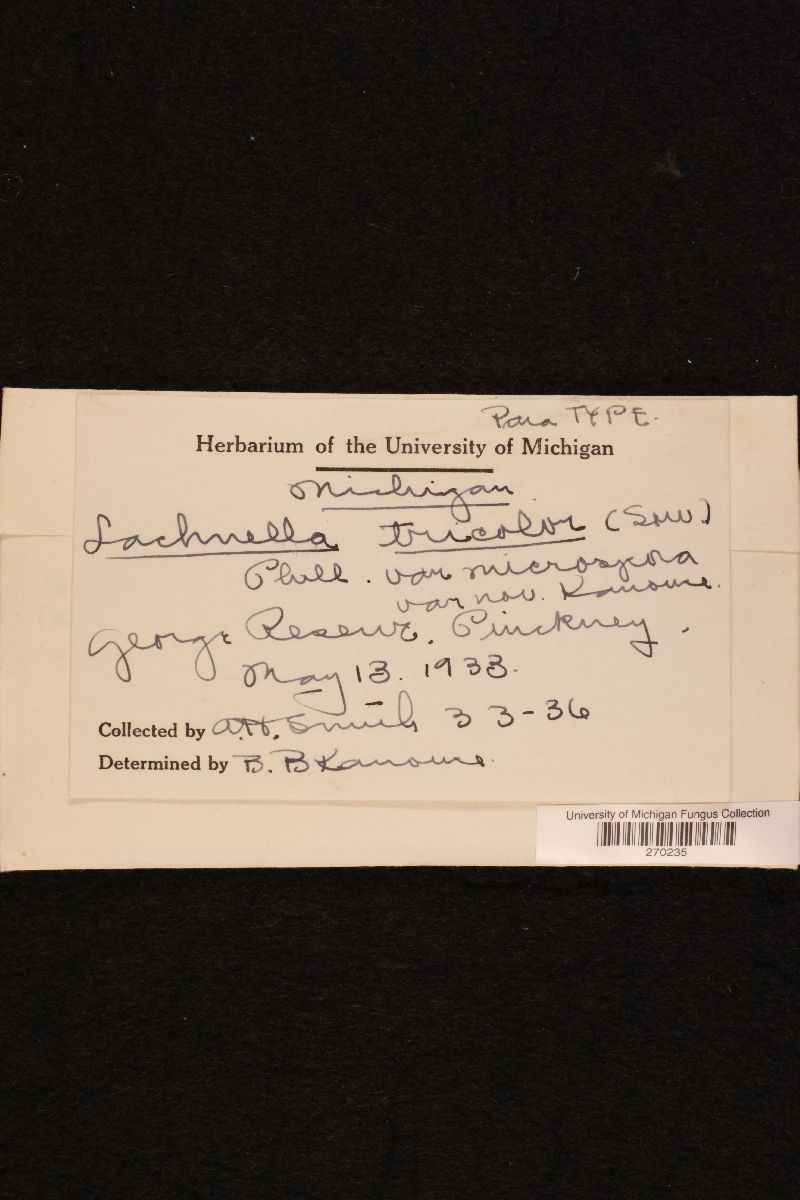 Para TYPE.
Herbarium of the University of Michigan
Michigan
Lachnella tricolor (Sow.)
Phill. var microspora
var nov. Kanouse.
George Reserve. Pinckney.
May 13. 1933.
Collected by A.H. Smith 33-36
Determined by B. B Kanouse.
University of Michigan Fungus Collection
270235